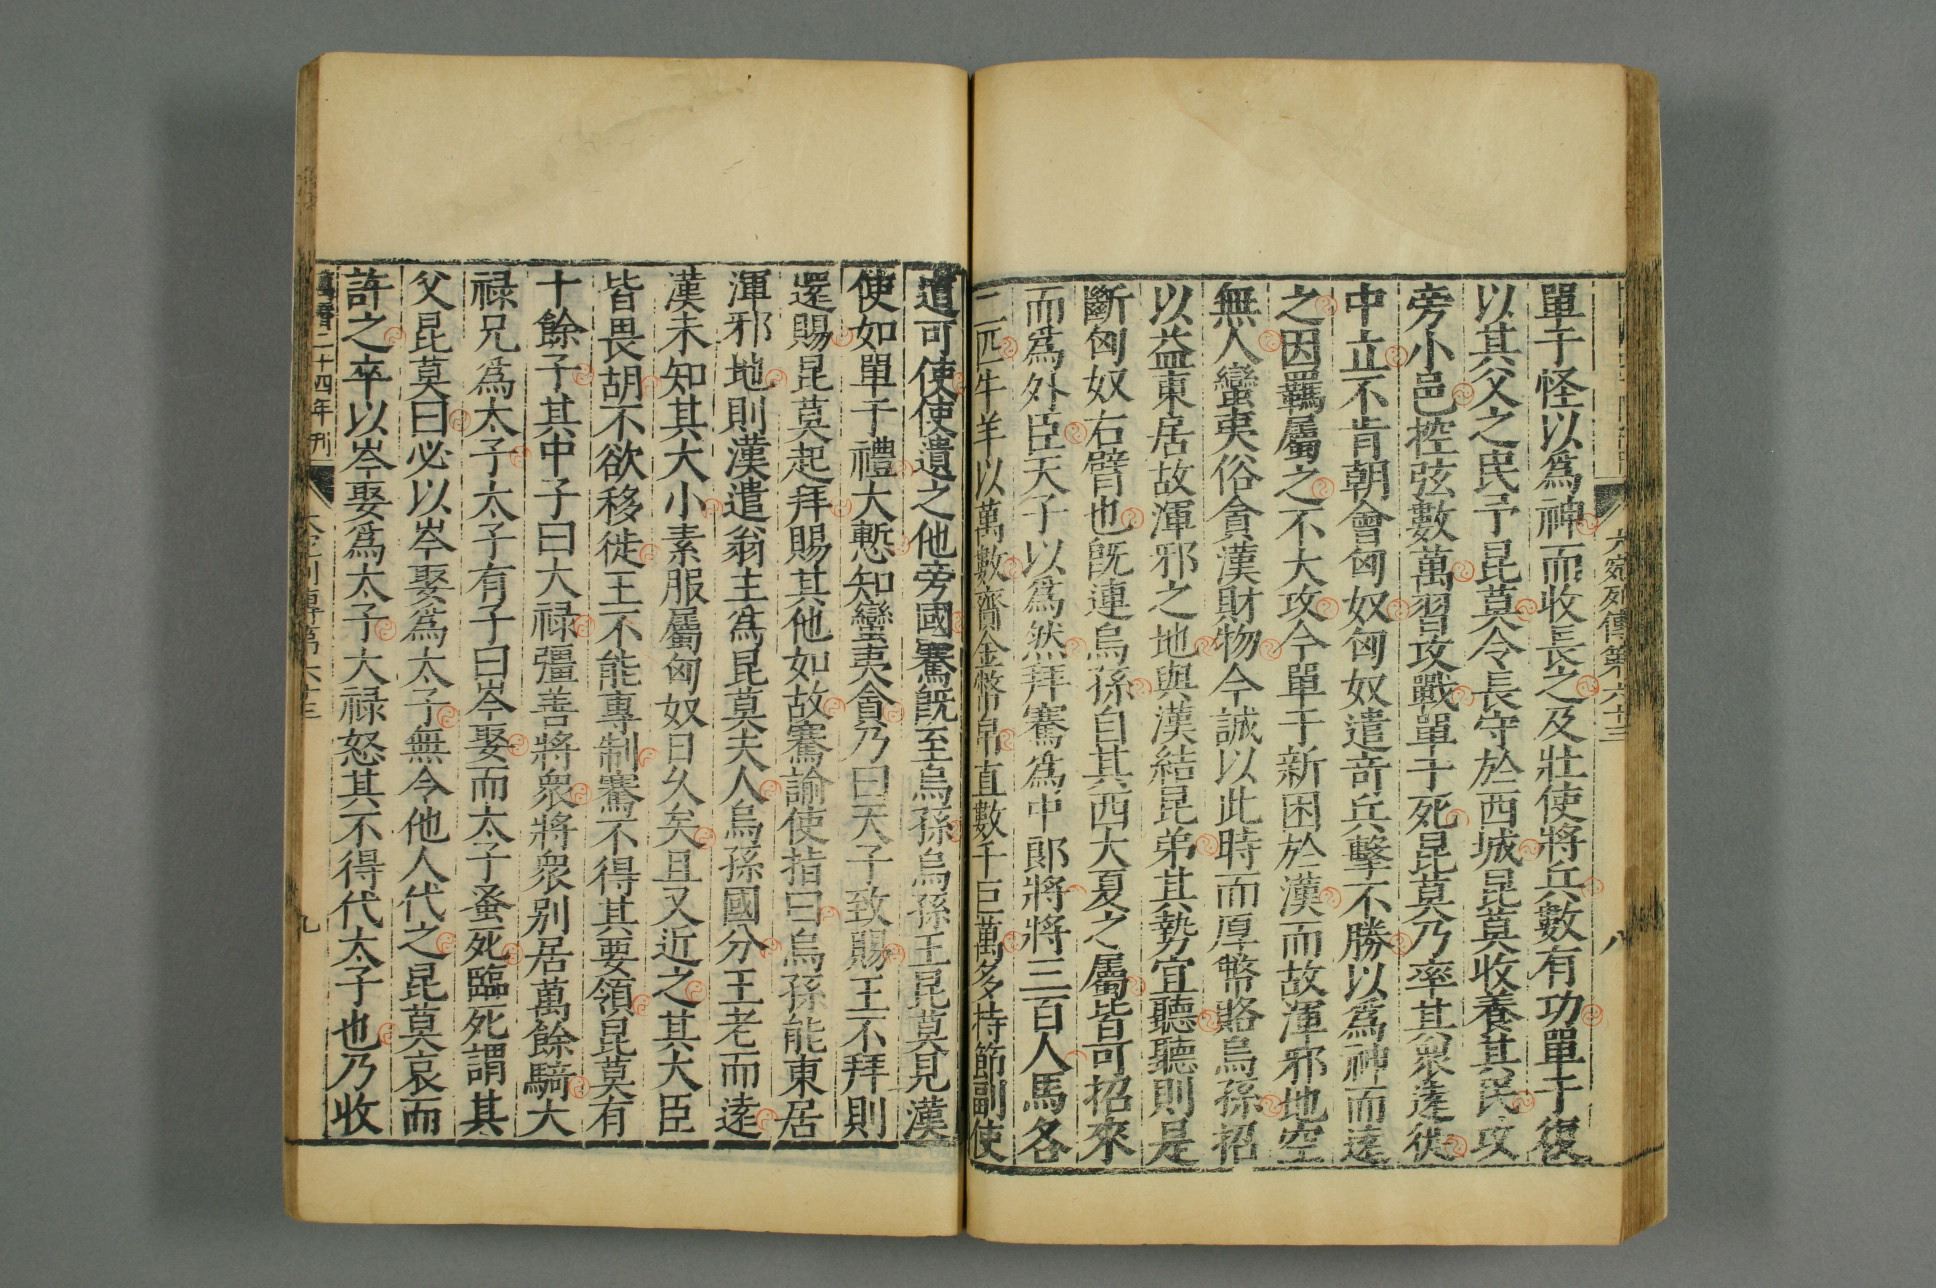 大宛列傳第六十三
八
單于怪以爲神而收長之及壯使將兵數有功單于復
以其父之民予昆莫令長守於西城昆莫收養其民攻
旁小邑控弦數萬習攻戰單于死昆莫乃率其衆遠徙
中立不肯朝會匈奴匈奴遣竒兵擊不勝以爲神而遠
之因羈屬之不大攻今單于新困於漢而故渾邪地空
無人蠻夷俗貪漢財物今誠以此時而厚幣賂烏孫招
以益東居故渾邪之地與漢結昆弟其勢宜聽聽則是
斷匈奴右臂也旣連烏孫自其西大夏之屬皆可招來
而爲外臣天子以爲然拜騫爲中郎將將三百人馬各
二匹牛羊以萬數齎金幣帛直數千巨萬多持節副使
道可使使遺之他旁國騫旣至烏孫烏孫王昆莫見漢
使如單于禮大慙知蠻夷貪乃曰天子致賜王不拜則
還賜昆莫起拜賜其他如故騫諭使指曰烏孫能東居
渾邪地則漢遣翁主爲昆莫夫人烏孫國分王老而遠
漢未知其大小素服屬匈奴日久矣且又近之其大臣
皆畏胡不欲移徙王不能專制騫不得其要領昆莫有
十餘子其中子曰大禄彊善將衆將衆别居萬餘騎大
禄兄爲太子太子有子曰岑娶而太子蚤死臨死謂其
父昆莫曰必以岑娶爲太子無令他人代之昆莫哀而
許之卒以岑娶爲太子大禄怒其不得代太子也乃收
二十四年刊
列傳第六十三
九